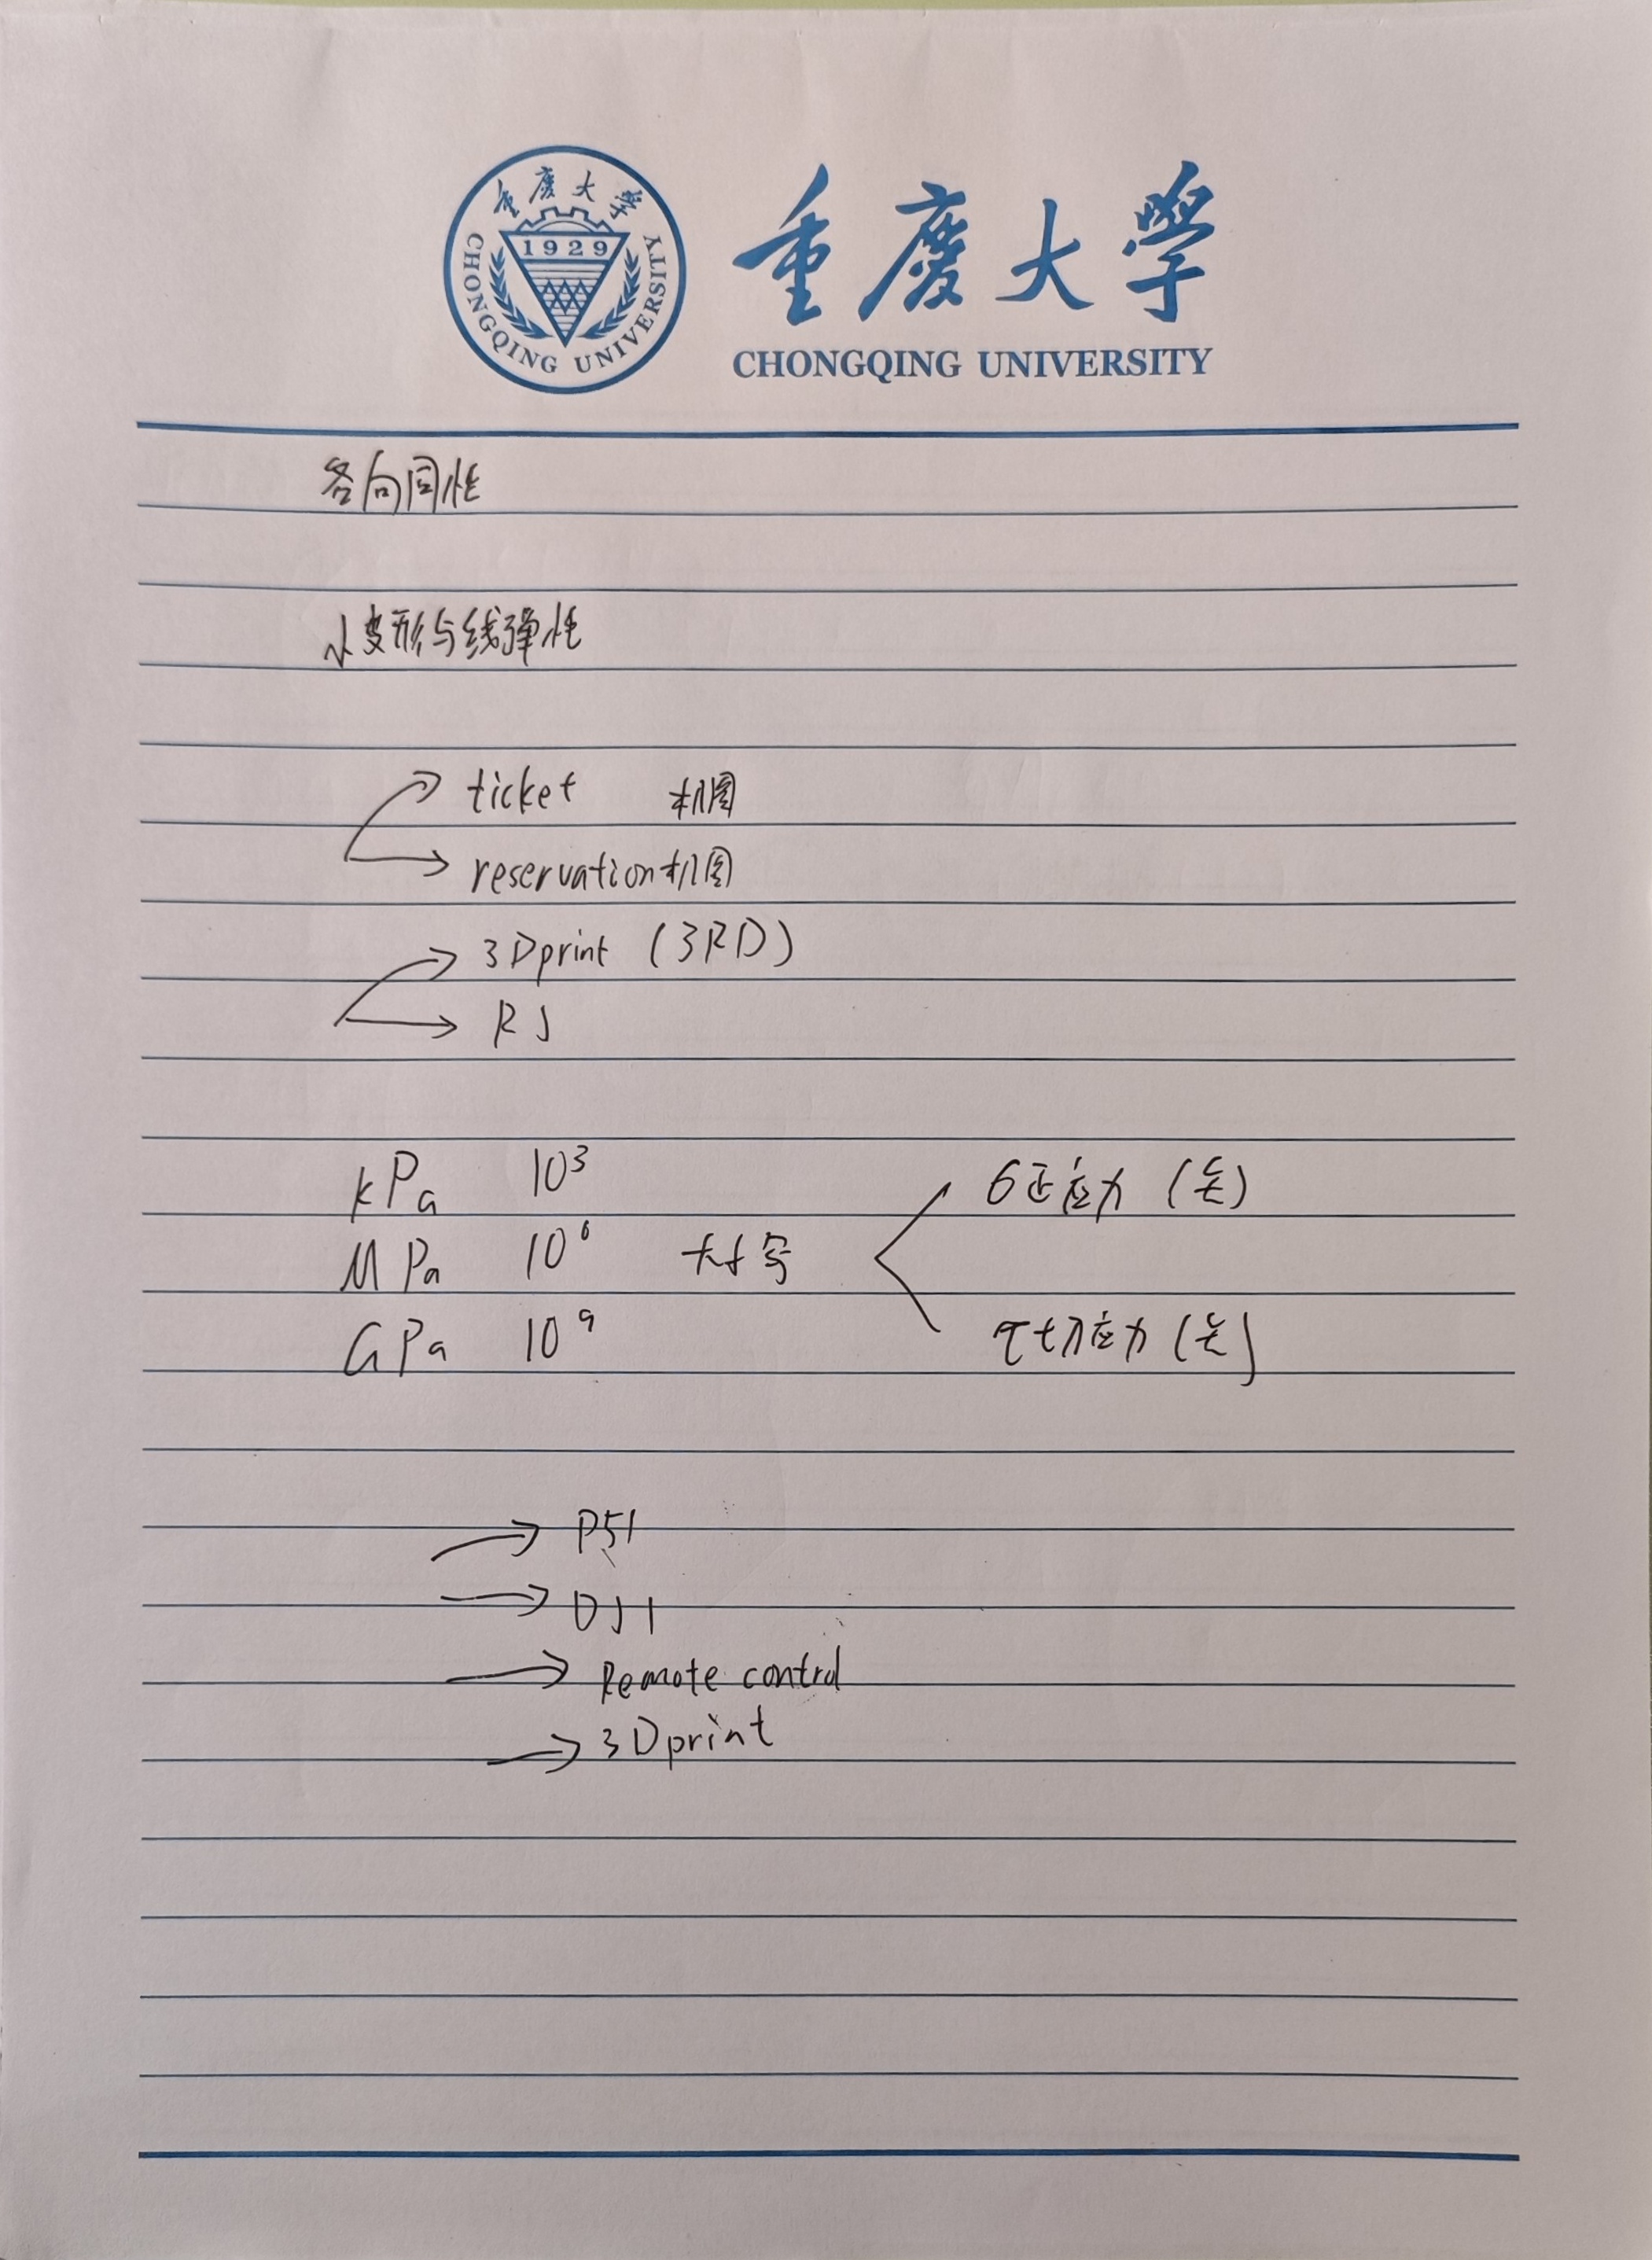 重庆大学
CHONGQING UNIVERSITY
1929
重慶大學
CHONGQING UNIVERSITY
各向同性
小变形与线弹性
ticket 机图
reservation机图
3Dprint (3RD)
RJ
kPa 10³
MPa 10⁶
GPa 10⁹
σ正应力
τ切应力
P51
DJI
Remote control
3Dprint